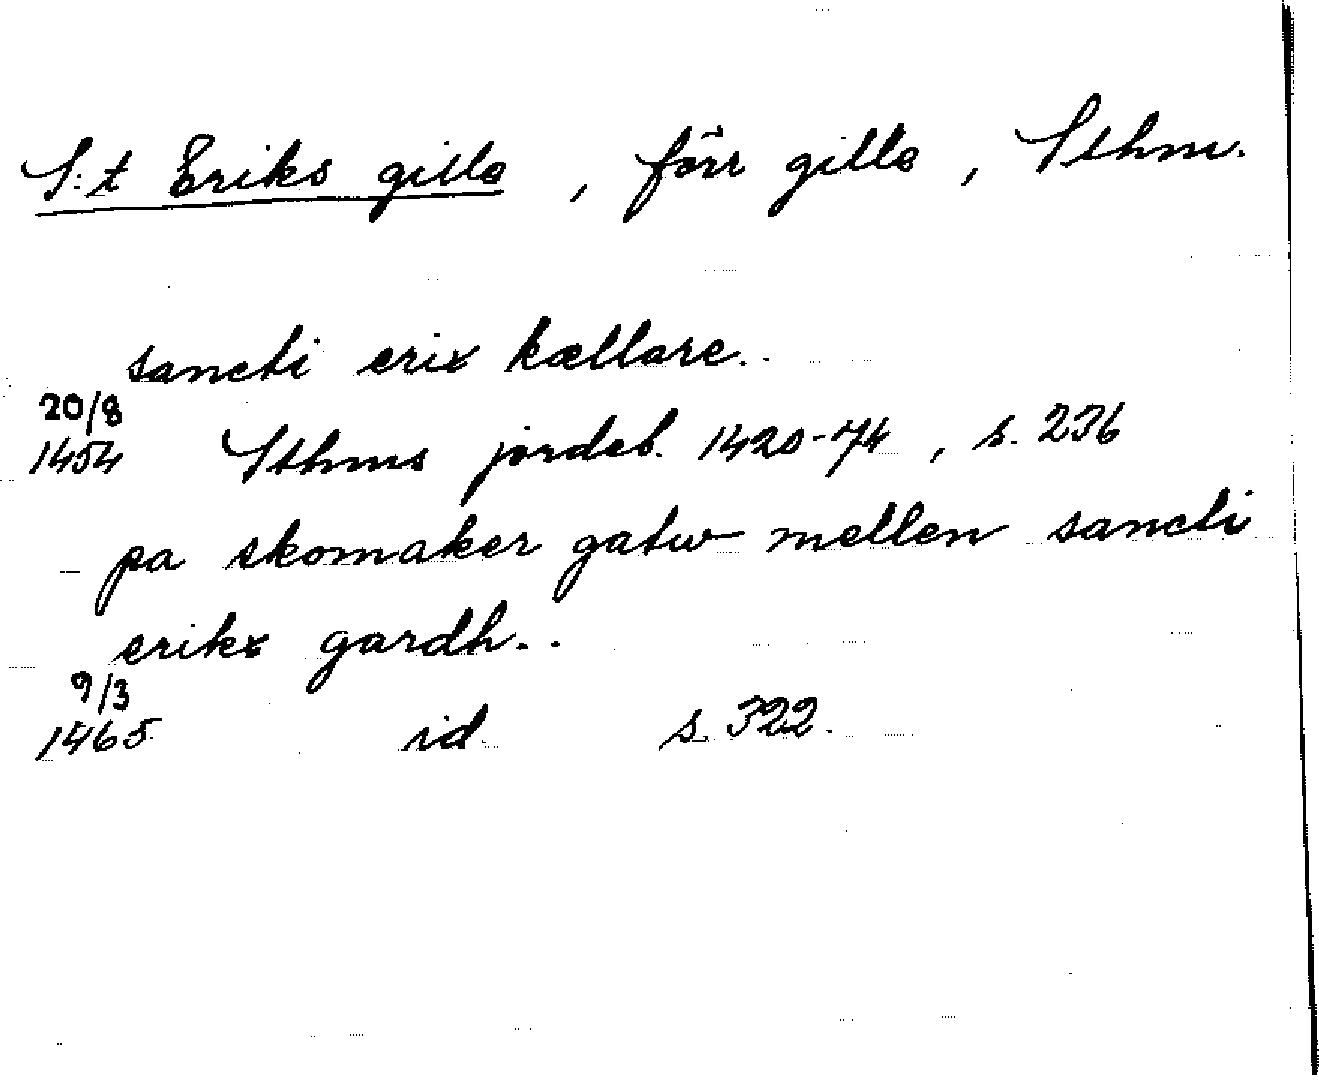 S:t Eriks gille, förr gille, Sthm.
sancti erix kællare..
20/8
1454 Sthms jordeb. 1420-74, s. 236
pa skomaker gatw mellen sancti
erikx gardh..
9/3
1465 id s. 322.